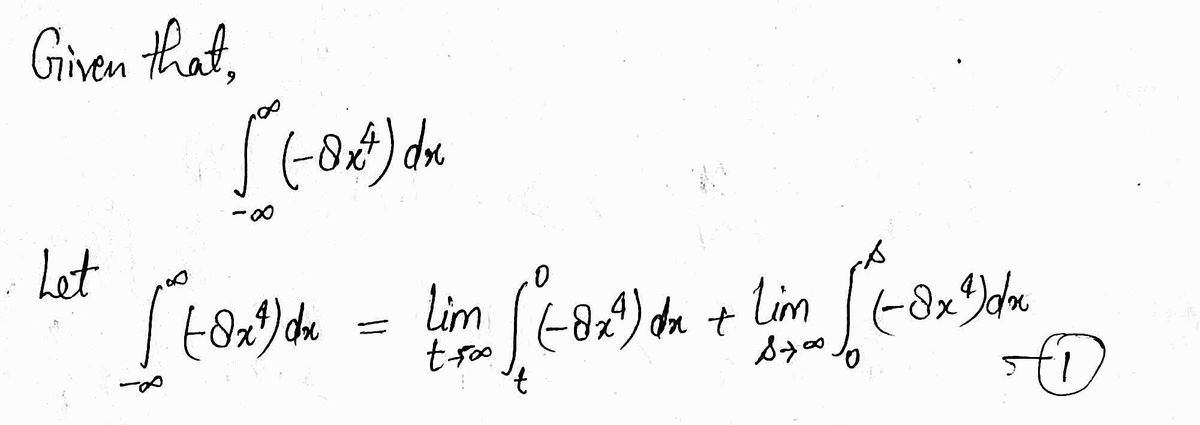 Given that,
∫_{-∞}^{∞} (-8x⁴) dx
Let ∫_{-∞}^{∞} (-8x⁴) dx = lim_{t→-∞} ∫_{t}^{0} (-8x⁴) dx + lim_{s→∞} ∫_{0}^{s} (-8x⁴) dx —①